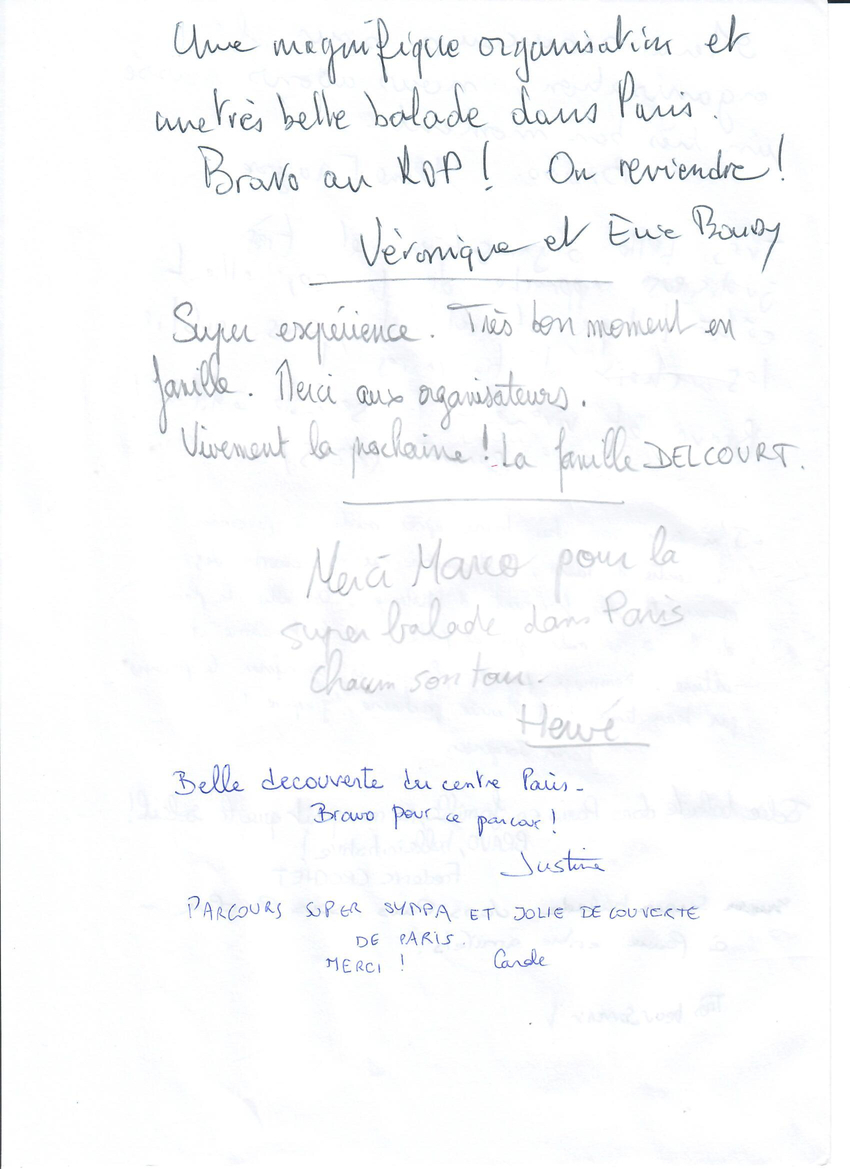 Une magnifique organisation et
une très belle balade dans Paris.
Bravo au RDP ! On reviendre !
Véronique et
Super expérience. Très bon moment en
famille. Merci aux organisateurs.
Vivement la prochaine ! La famille DELCOURT.
Merci Marco pour la
super balade dans Paris
chacun son tour.
Hervé
Belle decouverte du centre Paris -
Bravo pour ce parcour !
Justine
PARCOURS SUPER SYMPA ET JOLIE DECOUVERTE
DE PARIS.
MERCI ! Carole